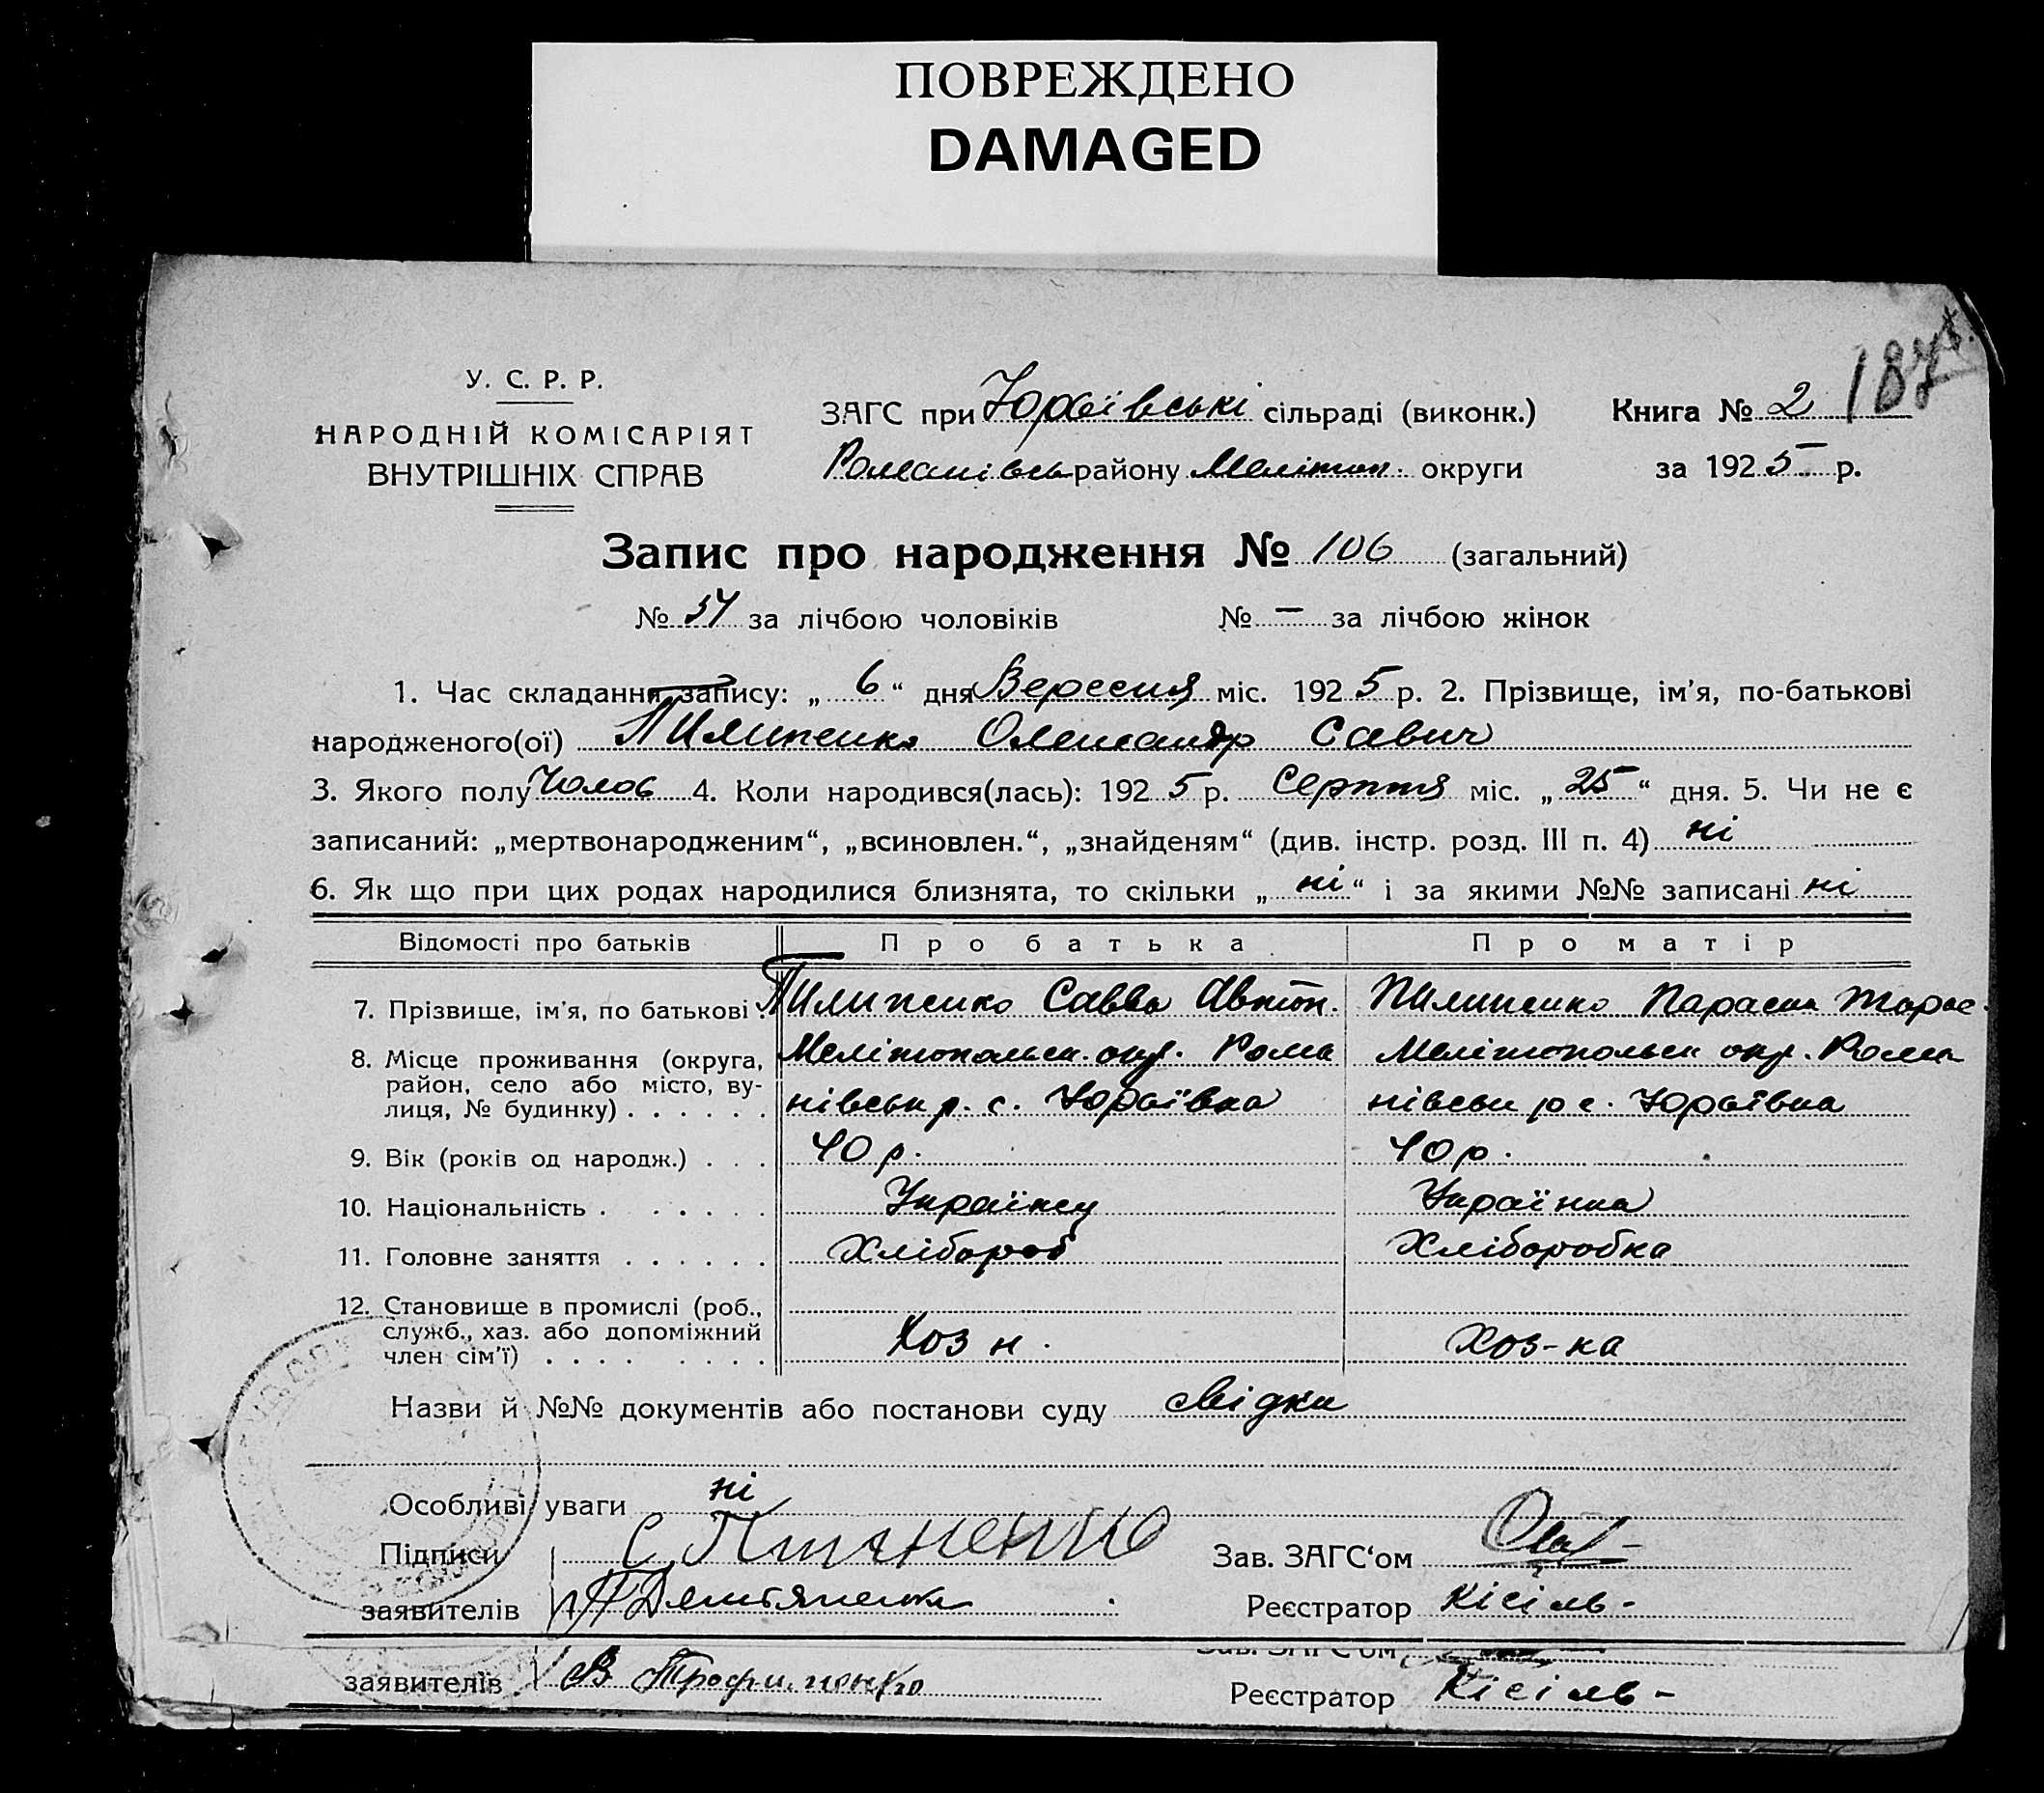 ПОВРЕЖДЕНО
DAMAGED
187
У. С. Р. Р.
НАРОДНІЙ КОМІСАРІЯТ
ВНУТРІШНІХ СПРАВ
ЗАГС при Юрʼївські сільраді (виконк.) Книга № 2
Романівськ району Мелітоп. округи за 1925 р.
Запис про народження № 106 (загальний)
№ 54 за лічбою чоловіків № — за лічбою жінок
1. Час складання запису: „ 6 “ дня Вересня міс. 1925 р. 2. Прізвище, ім’я, по-батькові
народженого(ої) Пилипенко Олександр Савич
3. Якого полу Чолов 4. Коли народився(лась): 1925 р. Серпня міс. „ 25 “ дня. 5. Чи не є
записаний: „мертвонародженим“, „всиновлен.“, „знайденям“ (див. інстр. розд. III п. 4) ні
6. Як що при цих родах народилися близнята, то скільки „ ні “ і за якими №№ записані ні
Відомості про батьків Про батька Про матір
7. Прізвище, ім’я, по батькові . Пилипенко Савва Автон. Пилипенко Параска Тарас.
8. Місце проживання (округа, Мелітопольск. окр. Рома Мелітопольск окр. Рома
район, село або місто, ву-
лиця, № будинку) . . . . . . нівськ р. с. Юрʼївка нівськ р с. Юрʼївка
9. Вік (років од народж.) . . . 40 р. 40 р.
10. Національність . . . . . . Українец Українка
11. Головне заняття . . . . . . Хлібороб Хліборобка
12. Становище в промислі (роб.,
служб., хаз. або допоміжний
член сім’ї) . . . . . . . . Хоз н. Хоз-ка
Назви й №№ документів або постанови суду свідки
Особливі уваги ні
Підписи С. Зав. ЗАГС‘ом
заявителів Реєстратор Кісіль-
Зав. ЗАГС‘ом
заявителів В Трофименко Реєстратор Кісіль-